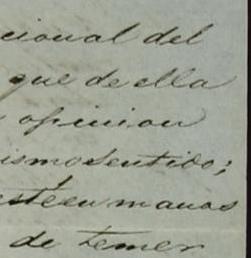 cional del
que de ella
opinion
ismo sentido;
esté en manos
de temer